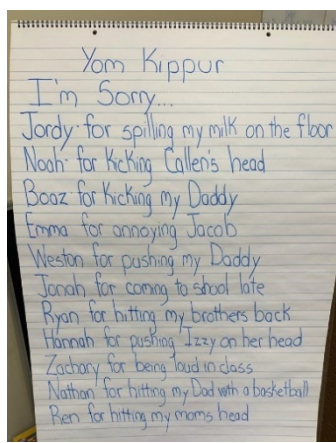 Yom Kippur
I'm Sorry...
Jordy- for spilling my milk on the floor
Noah- for kicking Callen's head
Boaz for kicking my Daddy
Emma for annoying Jacob
Weston for pushing my Daddy
Jonah for coming to shool late
Ryan for hitting my brothers back
Hannah for pushing Izzy on her head
Zachary for being loud in class
Nathan for hitting my Dad with a basketball
Ren for hitting my moms head